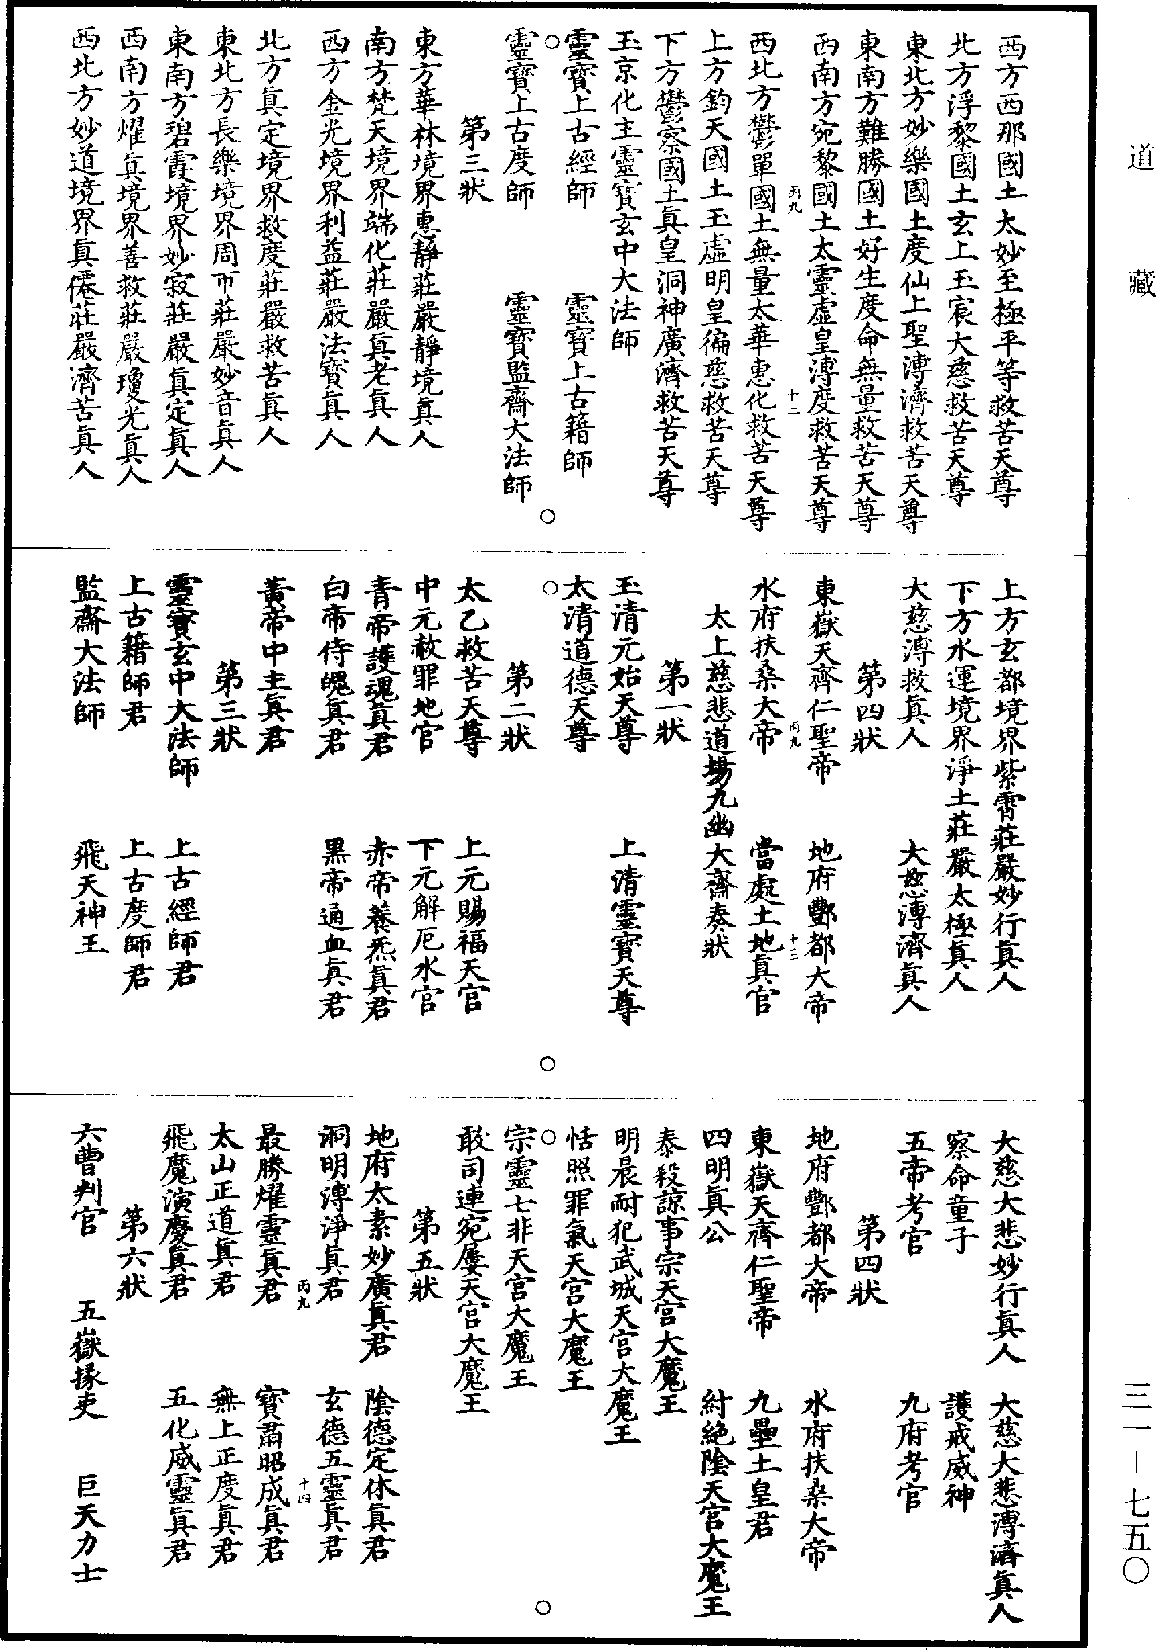 道藏
西方西那國土太妙至極平等救苦天尊
北方浮黎國土玄上玉宸大慈救苦天尊
東北方妙樂國土度仙上聖溥濟救苦天尊
東南方難勝國土好生度命無量救苦天尊
西南方宛黎國土太靈虛皇溥度救苦天尊
丙九
十二
西北方鬱單國土無量太華惠化救苦天尊
上方鈞天國土玉虛明皇徧慈救苦天尊
下方鬱察國土真皇洞神廣濟救苦天尊
玉京化主靈寶玄中大法師
靈寶上古經師　靈寶上古籍師
靈寶上古度師　靈寶監齋大法師
第三狀
東方華林境界惠靜莊嚴靜境真人
南方梵天境界端化莊嚴真老真人
西方金光境界利益莊嚴法寶真人
北方真定境界救度莊嚴救苦真人
東北方長樂境界周帀莊嚴妙音真人
東南方碧霞境界妙寂莊嚴真定真人
西南方耀真境界善救莊嚴瓊光真人
西北方妙道境界真僊莊嚴濟苦真人
上方玄都境界紫霄莊嚴妙行真人
下方水運境界淨土莊嚴太極真人
大慈溥救真人　大慈溥濟真人
第四狀
東嶽天齊仁聖帝　地府酆都大帝
丙九
十三
水府扶桑大帝　當處土地真官
太上慈悲道場九幽大齋奏狀
第一狀
玉清元始天尊　上清靈寶天尊
太清道德天尊
第二狀
太乙救苦天尊　上元賜福天官
中元赦罪地官　下元解厄水官
青帝護魂真君　赤帝養炁真君
白帝侍魄真君　黑帝通血真君
黃帝中主真君
第三狀
靈寶玄中大法師　上古經師君
上古籍師君　上古度師君
監齋大法師　飛天神王
大慈大悲妙行真人　大慈大悲溥濟真人
察命童子　護戒威神
五帝考官　九府考官
第四狀
地府酆都大帝　水府扶桑大帝
東嶽天齊仁聖帝　九壘土皇君
四明真公　紂絕陰天宮大魔王
泰殺諒事宗天宮大魔王
明晨耐犯武城天宮大魔王
恬照罪氣天宮大魔王
宗靈七非天宮大魔王
敢司連宛屢天宮大魔王
第五狀
地府太素妙廣真君　陰德定休真君
洞明溥淨真君　玄德五靈真君
丙九
十四
最勝耀靈真君　寶肅昭成真君
太山正道真君　無上正度真君
飛魔演慶真君　五化威靈真君
第六狀
六曹判官　五嶽掾吏　巨天力士
三一—七五〇